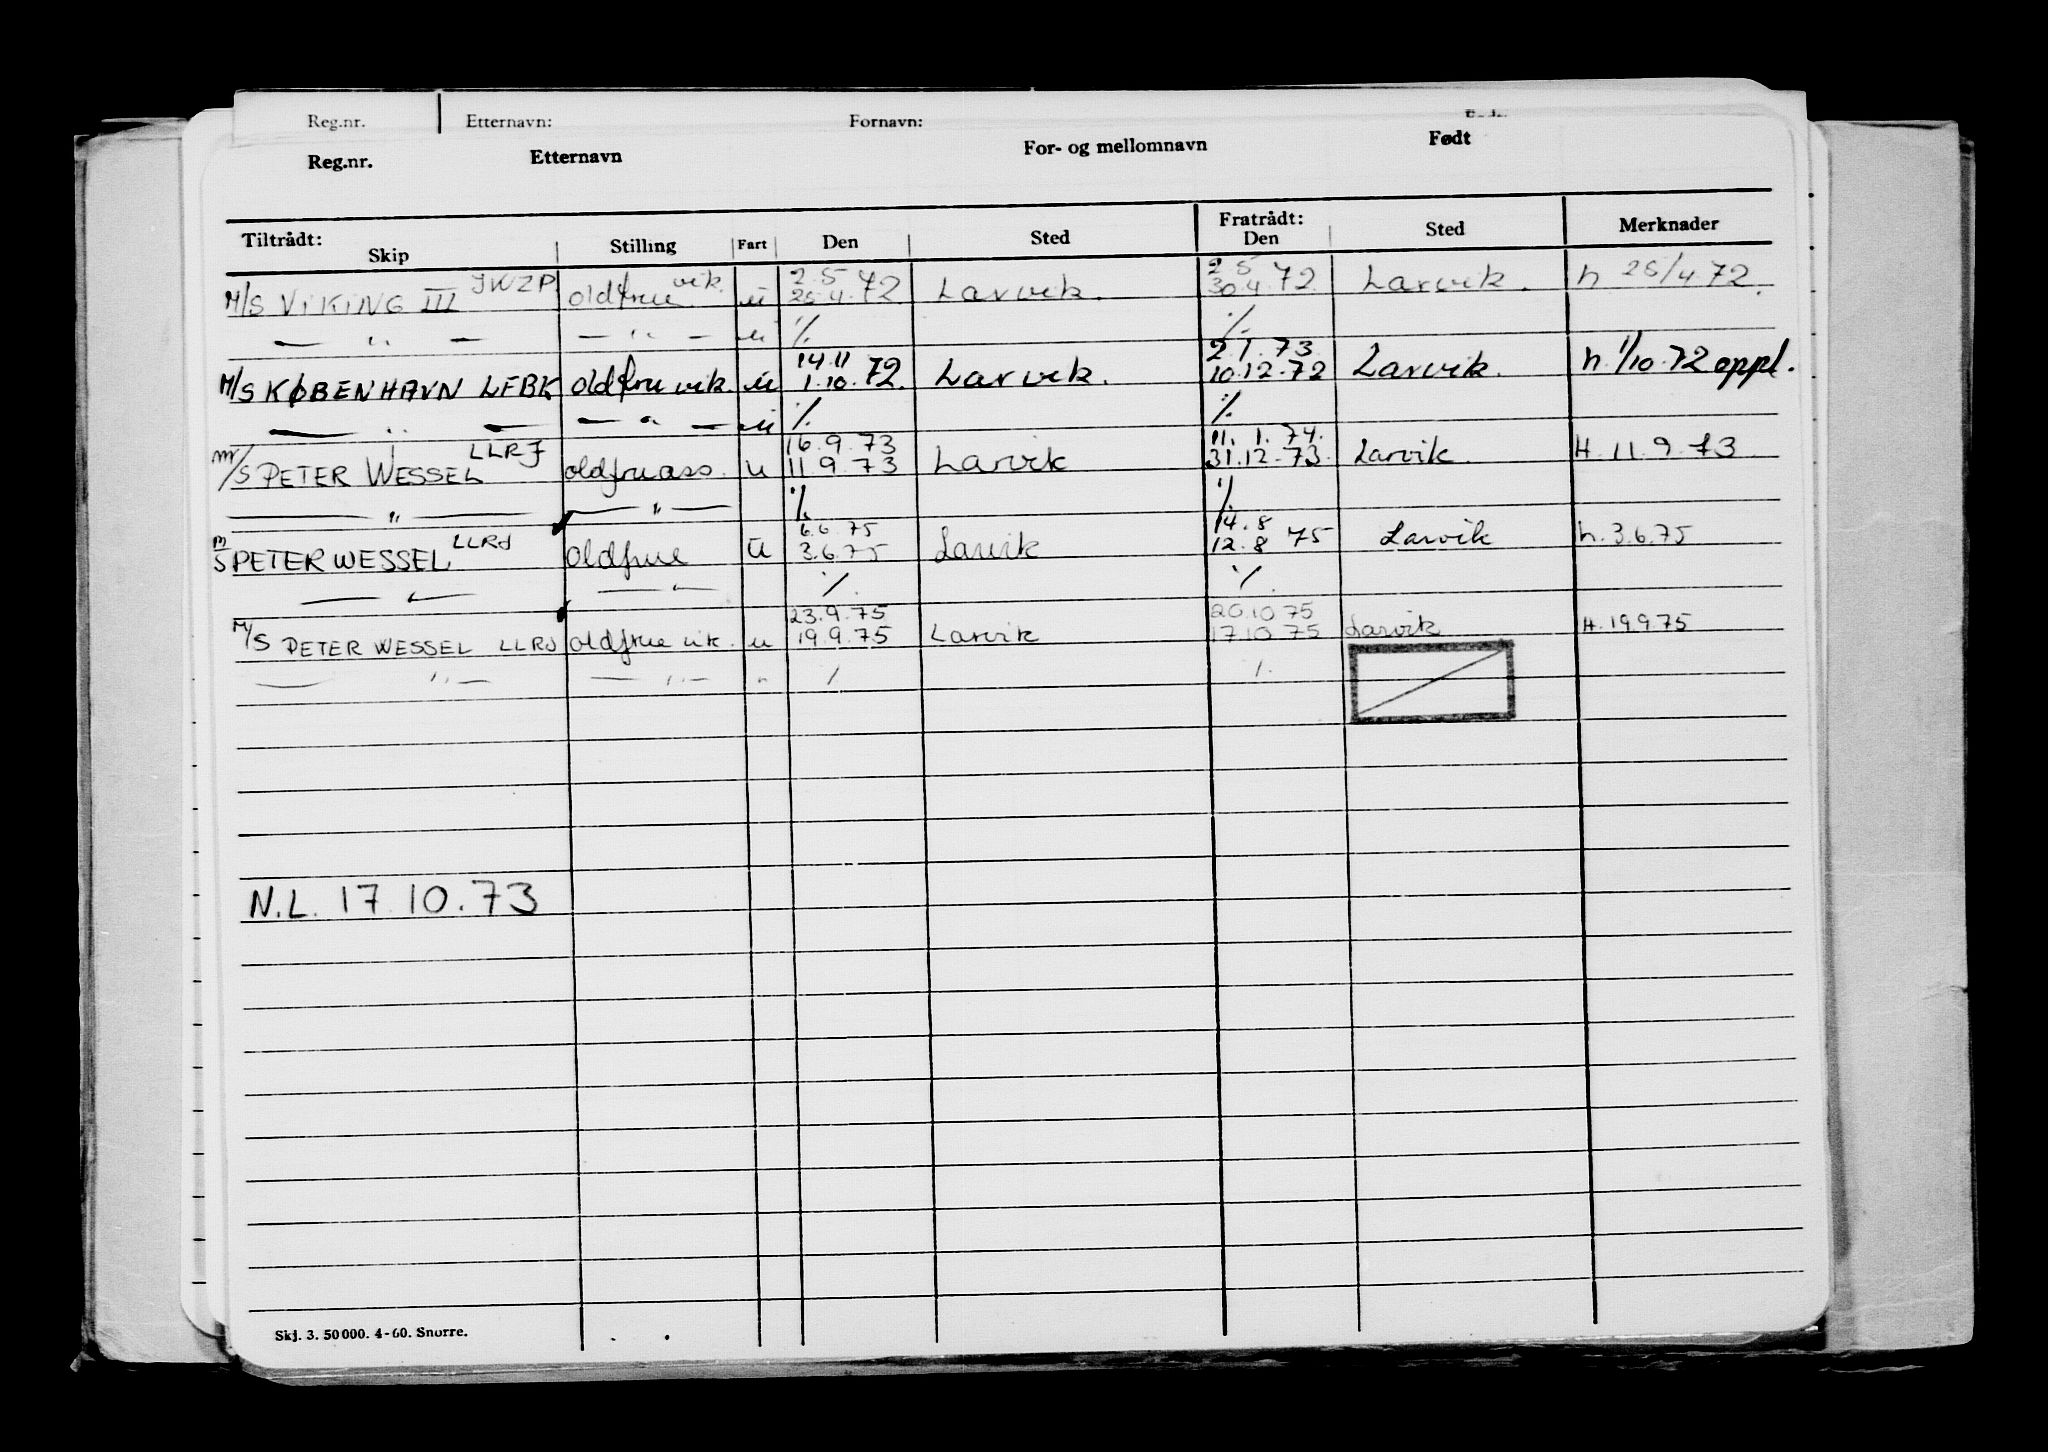 Reg.nr. Etternavn: Fornavn:
Reg.nr. Etternavn For- og mellomnavn Født
Tiltrådt: Fratrådt:
Skip Stilling Fart Den Sted Den Sted Merknader
JWZP vik. 2.5 2 5
M/S VIKING III oldfrue u 25.4.72 Larvik. 30.4.72 Larvik. h 25/4 72.
— " — — " — u ./. ./.
14.11 2.1.73
M/S KØBENHAVN LFBK oldfrue vik. u 1.10.72. Larvik. 10.12.72 Larvik. h. 1/10.72 oppl.
— " — — " — u ./. ./.
LLRJ 16.9.73 11.1.74.
M/S PETER WESSEL oldfrueass. u 11.9.73 Larvik 31.12.73. Larvik. H. 11.9.73
— " — — " — ./. ./.
LLRJ 6.6.75 14.8
M/S PETER WESSEL Oldfrue u 3.6.75 Larvik 12.8 75 Larvik h.3.6.75
— " — — " — ./. ./.
23.9.75 20.10.75
M/S PETER WESSEL LLRJ oldfrue vik. u 19.9.75 Larvik 17.10.75 Larvik H. 19.9.75
— " — — " — " ./. ./.
N.L. 17.10.73
Skj. 3. 50 000. 4-60. Snorre.